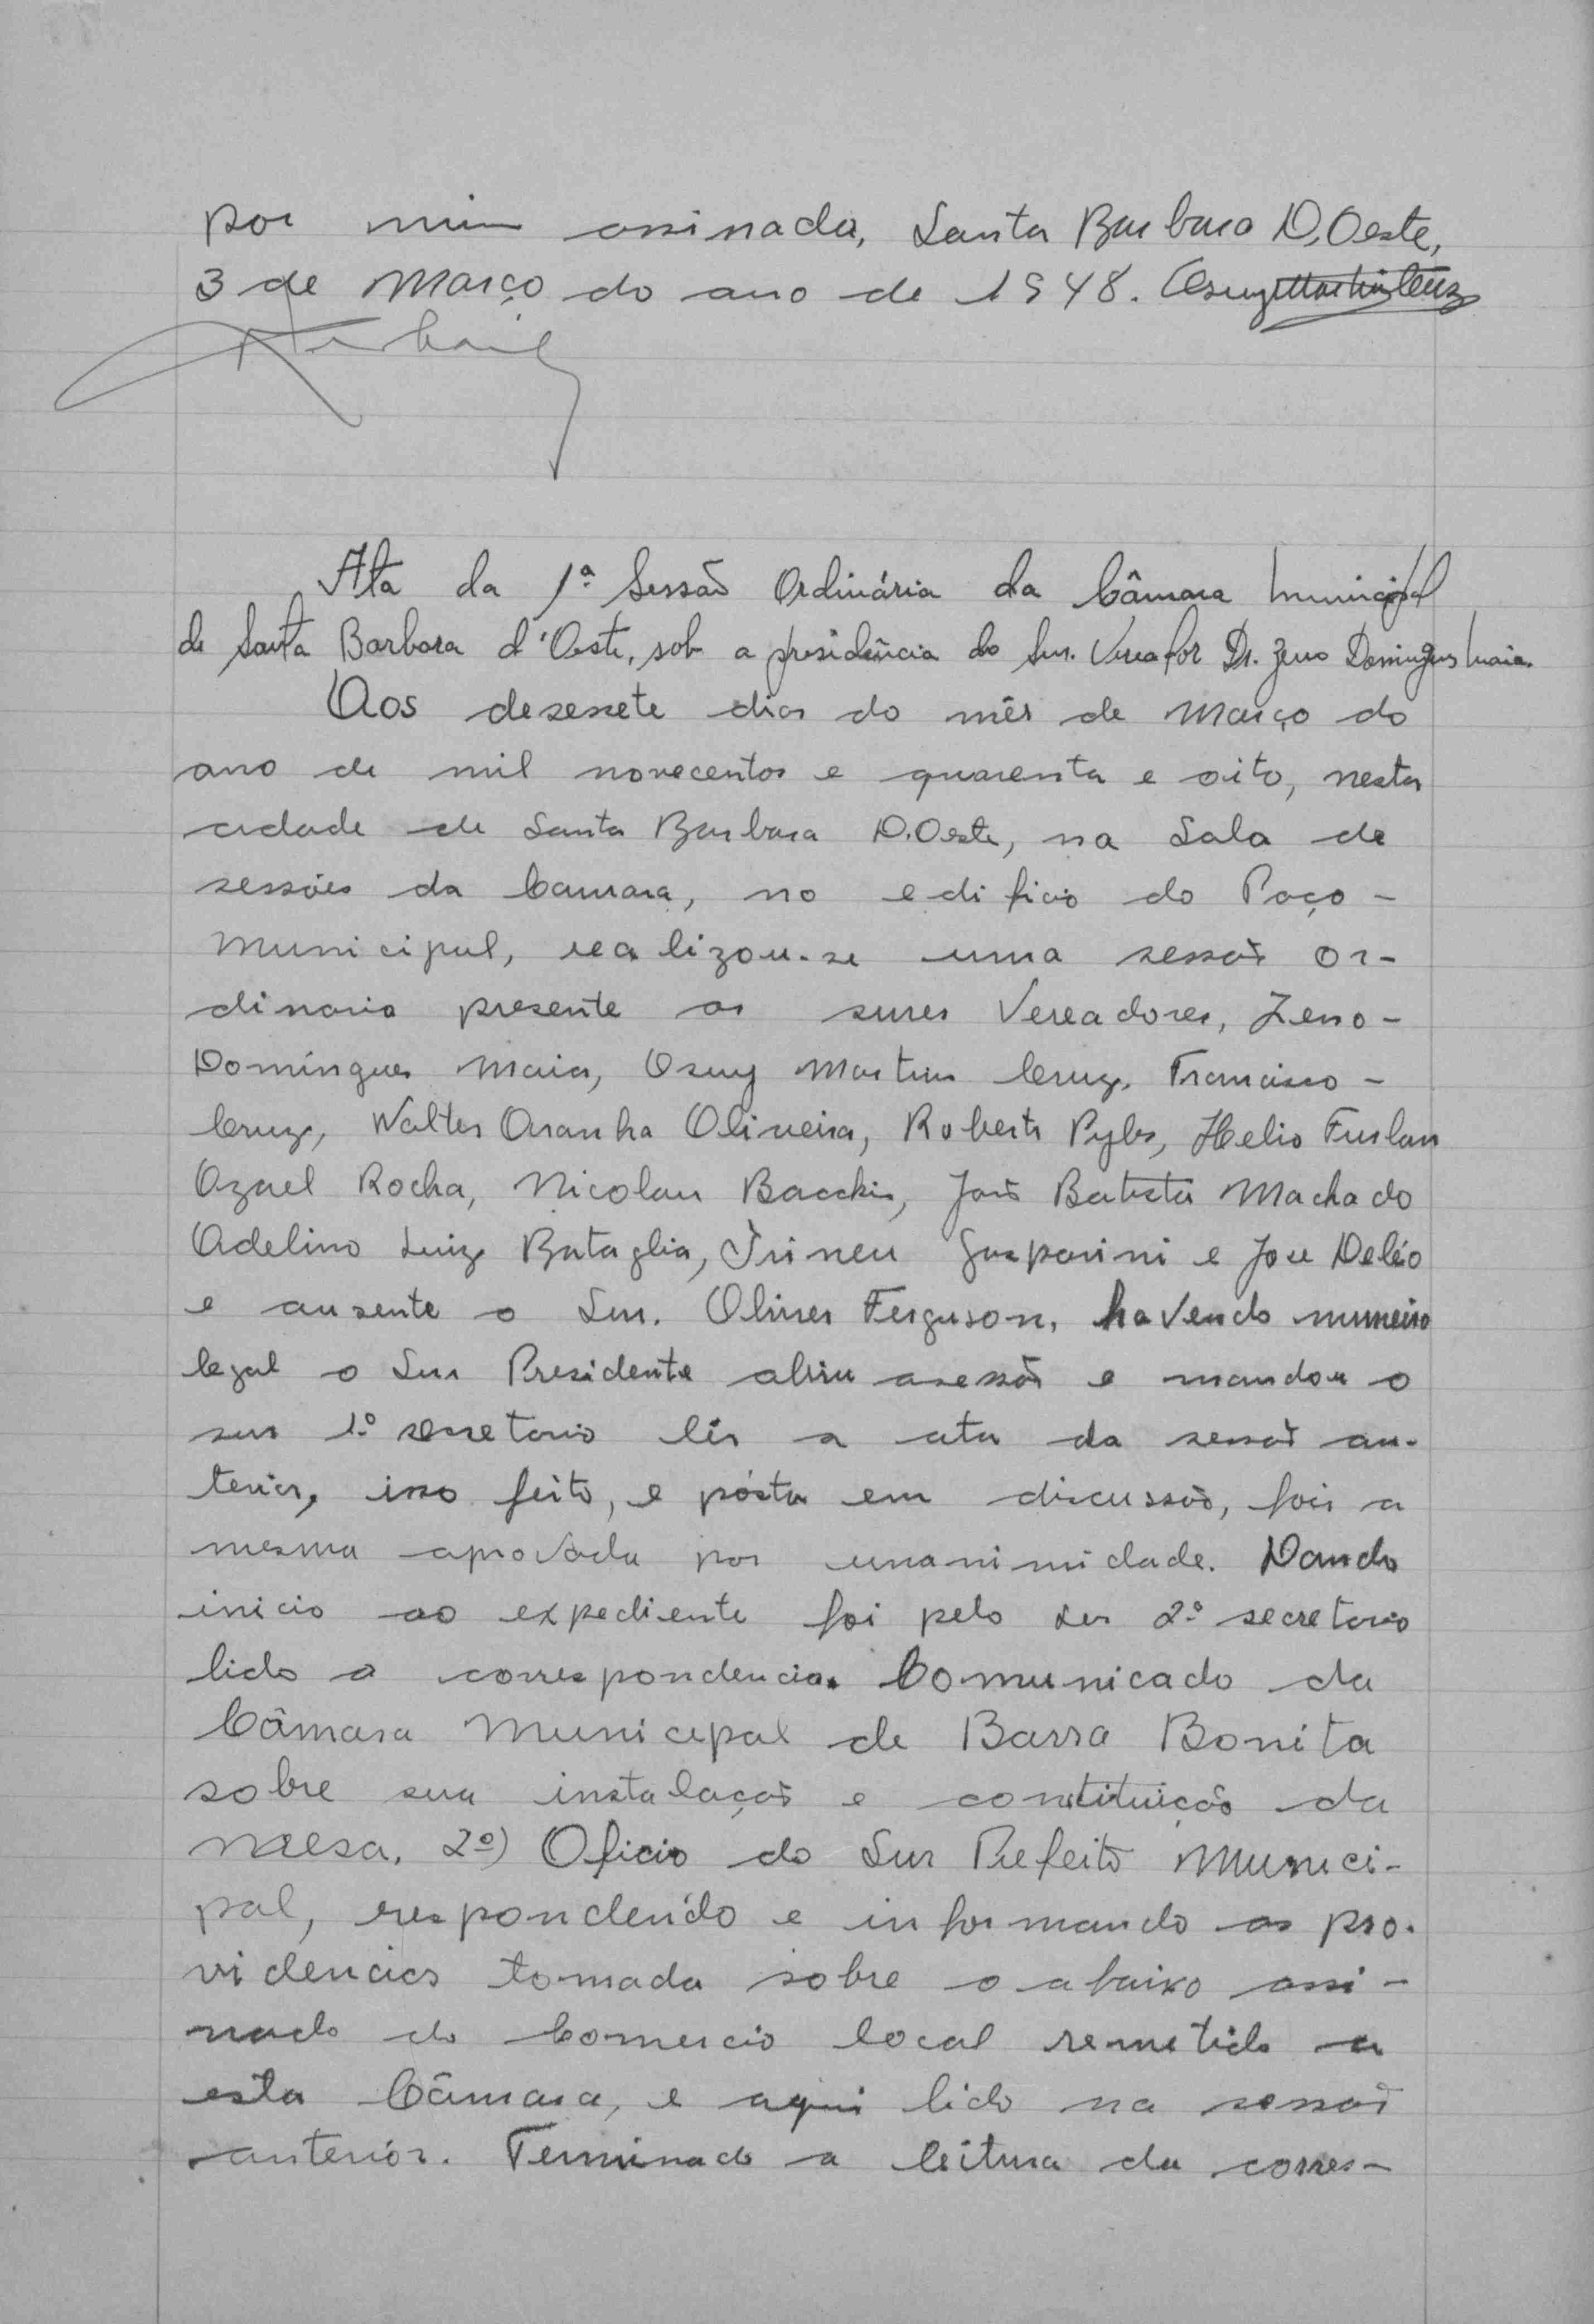 por mim assinada, Santa Barbara D.Oeste,
3 de Março do ano de 1948. Osuy Martins Cruz
Ata da 1ª Sessão Ordinária da Câmara Municipal
de Santa Barbara d'Oeste, sob a presidência do Snr. Vereador Dr. Zeno Domingues Maia.
Aos desessete dias do mês de Março do
ano de mil novecentos e quarenta e oito, nesta
cidade de Santa Barbara D.Oeste, na Sala de
sessões da Camara, no edificio do Paço -
Municipal, realizou-se uma sessão or-
dinaria presente os snres Vereadores, Zeno -
Domingues Maia, Osuy Martins Cruz, Francisco -
Cruz, Walter Aranha Oliveira, Roberts Pyles, Helio Furlan
Ozael Rocha, Nicolau Bacchin, João Batista Machado
Adelino Luiz Bataglia, Irineu Gasparini e Jose Deléo
e ausente o Snr. Oliver Ferguson, havendo numero
legal o Snr Presidente abriu a sessão e mandou o
snr 1º secretario lêr a ata da sessão an-
terior, isso feito, e pósta em discussão, foi a
mesma aprovada por unanimidade. Dando
inicio ao expediente foi pelo snr 2º secretario
lido a correspondencia. Comunicado da
Câmara Municipal de Barra Bonita
sobre sua instalação e constituição da
mesa. 2º) Oficio do Snr Prefeito Munici-
pal, respondendo e informando as pro-
videncias tomada sobre o abaixo assi-
nado do Comercio local remetido a
esta Câmara, e aqui lido na sessão
anterior. Terminado a leitura da corres-